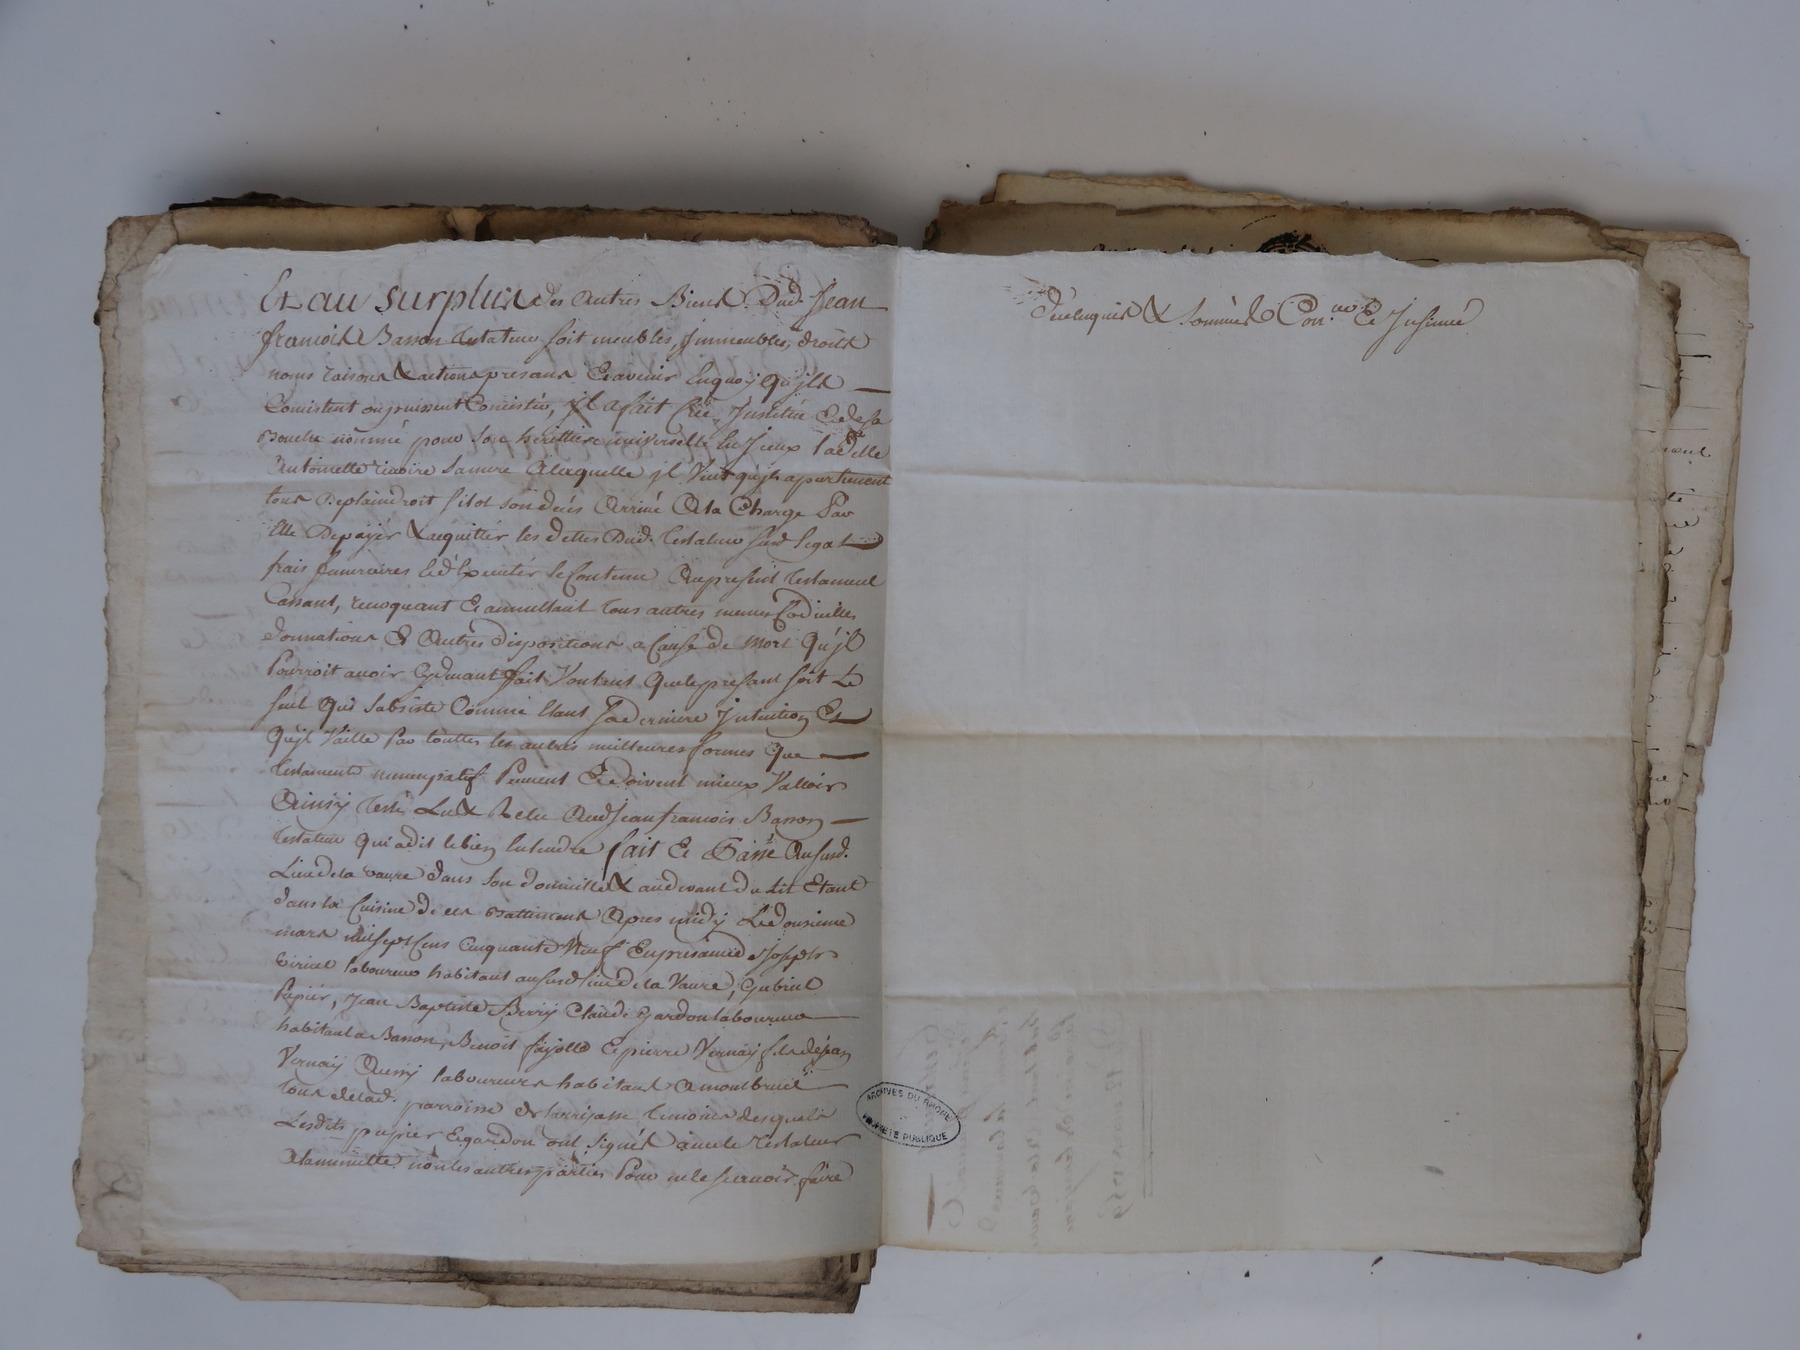 Et au surplus des autres Biens Dud. Jean
francois Basson testateur soit meubles, Jmmeubles, droits
noms raisons & actions presans Et avenir En quoy Qu'jls
Consistent ou puissent Consister, jl a fait Crée Jnstitué Et de sa
Bouche nommé pour son herittiere universelle En Jceux lad. dlle
Antoinette sa mere A laquelle jl Veut qu'jls apartienent
tous De plain droit sitot son décés Arrivé A la Charge Par
Elle De payér & acquittér les dettes Dud. Testateur susd. legat
frais funeraires Et d'Exécuter le Contenu Au present Testament
Cassant, revoquant Et annullant tous autres memes Codicilles
donnations Et Autres dispositions a Cause de Mort Qu'jl
Pourroit avoir Cydevant fait Voulant Que le present soit Le
seul Qui subsiste Comme Etant sa derniere Jntention Et
Qu'jl Vaille Par touttes les autres meilleures formes Que
Testament nuncupatif Peuvent Et doivent mieux Valloir
Ainsy Testé Lu & Relu Aud Jean francois Basson
Testateur Qui a dit le bien Entendre fait Et Passé Au susd.
Lieu de la vaure dans son domicille & au devant du lit Etant
dans la Cuisine de ses Battiments Apres midy Le dousieme
mars mil sept Cens Cinquante Neuf En presance de Joseph
laboureur habitant au susd lieu de la Vaure, Gabriel
Papier, Jean Baptiste Berry Claude Gardon laboureur
habitant a Basson, Benoit fayolle Et pierre Vernay fils de jean
Vernay Aussy laboureurs habitans A montbruil
tous de lad. parroisse de larrijasse temoins desquels
Lesdits papier Et gardon ont signés avec le Testateur
A la minutte non les autres parties Pour ne le scavoir faire
d'Enquis & sommés Con.né Et Jnsinué
ARCHIVES DU RHONE
PROPRIETE PUBLIQUE